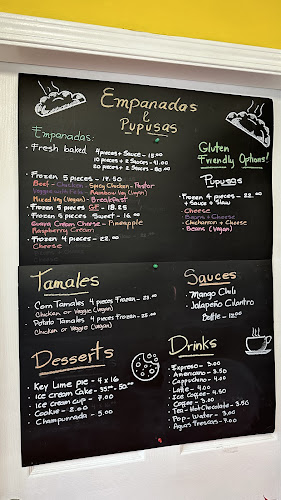 Empanadas
&
Pupusas
Empanadas:
• Fresh baked 4 pieces + Sauce - 18.00
10 pieces + 2 Sauces - 41.00
20 pieces + 2 Sauces - 80.00
• Frozen 5 pieces - 17.50
Beef - Chicken - Spicy Chicken - Pastor
Veggie with Feta - Rainbow Vey (Vegan)
Mixed Vey (Vegan) - Breakfast
• Frozen 5 pieces GF - 18.25
• Frozen 5 pieces Sweet - 16.00
Guava Cream Cheese - Pineapple
Raspberry Cream
• Frozen 4 pieces - 22.00
Cheese
Gluten
Friendly Options!
Pupusas
• Frozen 4 pieces - 22.00
+ Sauce + Slaw
- Cheese
- Beans + Cheese
- Chicharron + Cheese
- Beans (Vegan)
Tamales
• Corn Tamales 4 pieces Frozen - 25.00
Chicken or Veggie (Vegan)
• Potato Tamales 4 pieces Frozen - 25.00
Chicken or Veggie (Vegan)
Sauces
• Mango Chili
• Jalapeño Cilantro
Bottle - 12.00
Desserts
• Key Lime pie - 4 x 16
• Ice cream Cake - 35.00 - 50.00
• Ice cream cup - 7.00
• Cookie - 2.00
• Champurrada - 5.00
Drinks
• Expreso - 3.00
• Americano - 3.50
• Cappuccino - 4.00
• Latte - 4.00
• Ice Coffee - 4.50
• Coffee - 3.00
• Tea - Hot Chocolate - 3.50
• Pop - Water - 3.00
• Aguas Frescas - 7.00